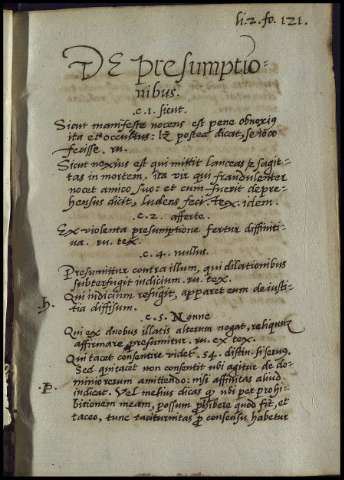 li.2.fo. 121.
DE presumptio-
nibus.
.c.1. sicut.
Sicut manifeste nocens est pene obnoxiꝰ
ita et occultus: lꝫ postea dicat, se ioco
fecisse. ru.
Sicut noxius est qui mittit lanceas ⁊ sagit-
tas in mortem. ita vir qui fraudulenter
nocet amico suo: et cum fuerit depre-
hensus dicit, ludens feci. tex. idem.
.c.2. afferte.
Ex violenta presumptione fertur diffiniti-
va. ru. tex.
.c.4. nullus.
Presumitur contra illum, qui dilationibus
subterfugit iudicium. ru. tex.
h. Qui iudicium refugit, apparet eum de iusti-
tia diffisum.
.c.5. Nonne
Qui ex duobus illatis alterum negat, reliquum
affirmare presumitur. ru. ex tex.
Qui tacet consentire videt. 54. distin. si servꝰ.
Sed qui tacet non consentit ubi agitur de do-
p. minorerum amittendo: nisi affinitas aliud
indicat. Vel melius dicas ꝙ ubi per prohi-
bitionem meam, possum ꝓhibere quod fit, et
taceo, tunc taciturnitas ꝓ consensu habetur